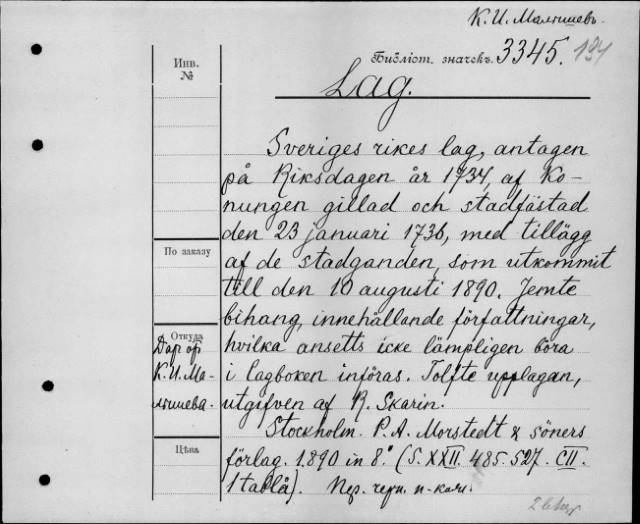 К. И. Малышевъ.
Инв. №
Библіот. значекъ. 3345. 194
Lag.
Sveriges rikes lag, antagen
på Riksdagen år 1734, af Ko-
nungen gillad och stadfästad
den 23 januari 1736, med tillägg
По заказу
af de stadganden, som utkommit
till den 10 augusti 1890. Jemte
bihang, innehållande författningar,
Откуда
hvilka ansetts icke lämpligen böra
Дар от К. И. Малышева.
i lagboken införas. Tolfte upplagan,
utgifven af R. Skarin.
Stockholm. P. A. Morstedt & söners
Цѣна
förlag. 1890 in 8° (S. XXII. 485. 527. CII.
1 tablå). Пер. черн. п-кож.